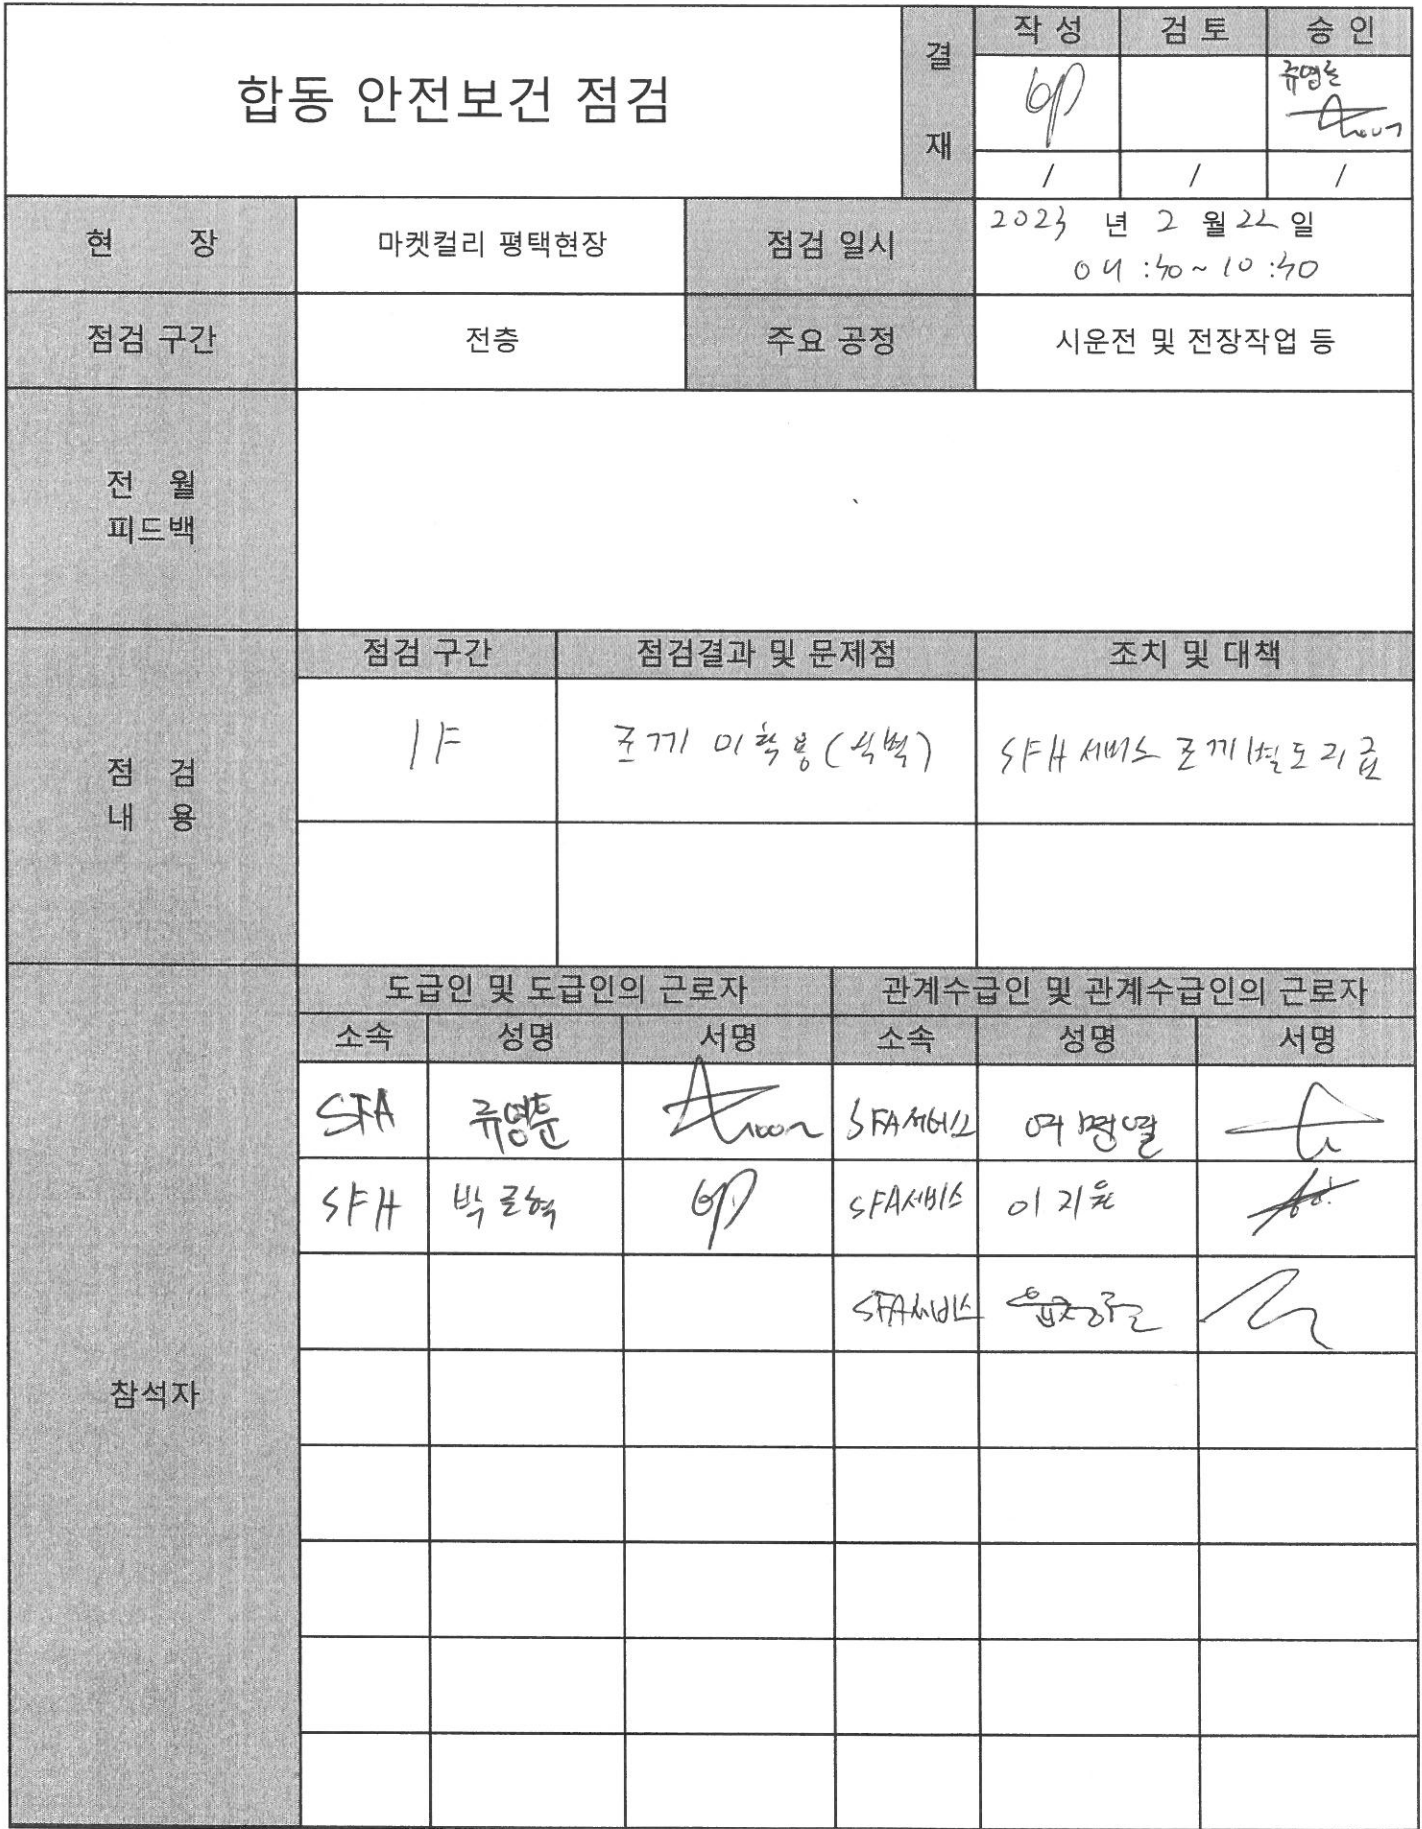 합동 안전보건 점검
결재
작 성 검 토 승 인
류영훈
/ / /
현 장 마켓컬리 평택현장 점검 일시 2023 년 2 월 22 일
09 :30 ~ 10 :30
점검 구간 전층 주요 공정 시운전 및 전장작업 등
전 월
피드백
점 검
내 용
점검 구간 점검결과 및 문제점 조치 및 대책
1F 조끼 미착용 SFA 서비스 조끼 별도 지급
참석자
도급인 및 도급인의 근로자 관계수급인 및 관계수급인의 근로자
소속 성명 서명 소속 성명 서명
SFA 류영훈 SFA서비스
SFA 박근혁 SFA서비스 이지윤
SFA서비스